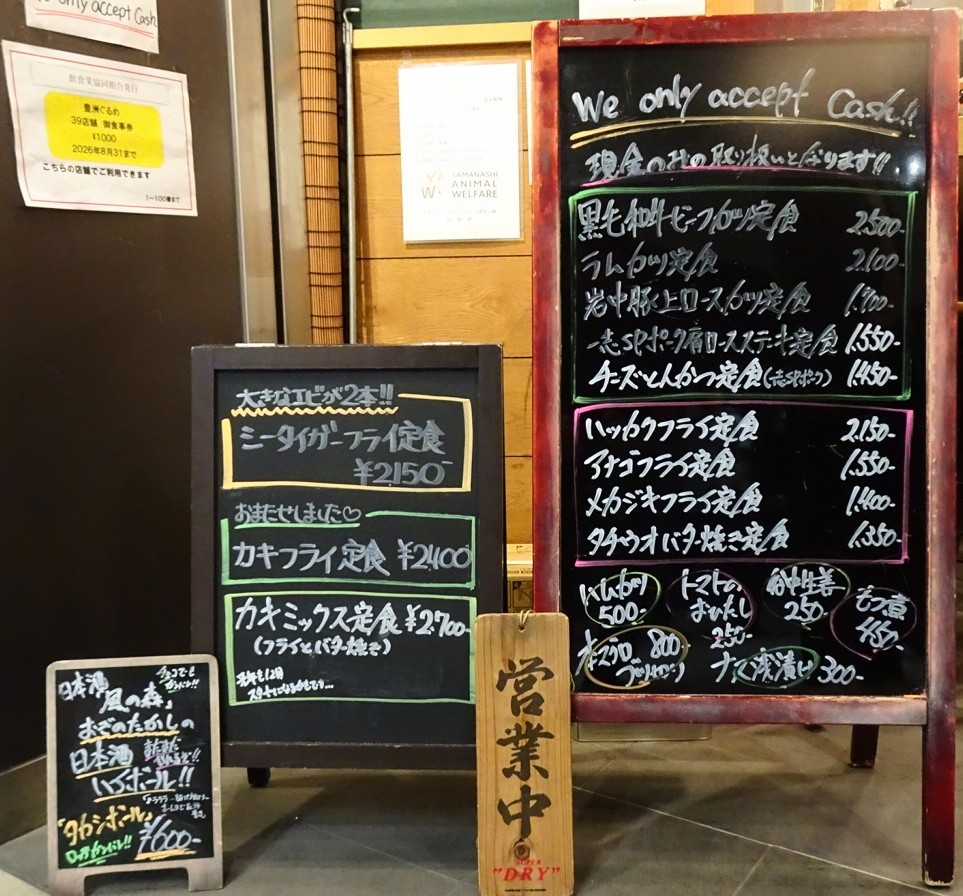 We only accept Cash
飲食業協同組合発行
豊洲ぐるめ
39店舗 御食事券
¥1000
2026年8月31まで
こちらの店舗でご利用できます
1~100番まで
YAMANASHI
ANIMAL
WELFARE
We only accept Cash!!
現金のみの取り扱いとなります!!
黒毛和牛ビーフカツ定食 2.500-
ラムカツ定食 2.100-
岩中豚上ロースカツ定食 1.900-
一志SPポーク肩ロースステーキ定食 1.550-
チーズとんかつ定食(一志SPポーク) 1.450-
ハッカクフライ定食 2.150-
アナゴフライ定食 1.550-
メカジキフライ定食 1.400-
タチウオバター焼き定食 1.350-
ハムカツ
500-
トマトの
おひたし
250-
谷中生姜
250-
もつ煮
450-
800-
ナス浅漬け 300-
大きなエビが2本!!
シータイガーフライ定食
¥2150-
おまたせしました♡
カキフライ定食 ¥2400
カキミックス定食 ¥2.700-
(フライとバター焼き)
日本酒
「風の森」
おぎのたかしの
日本酒
ハイボール!!
「タカシボール」
¥600-
営業中
SUPER
"DRY"